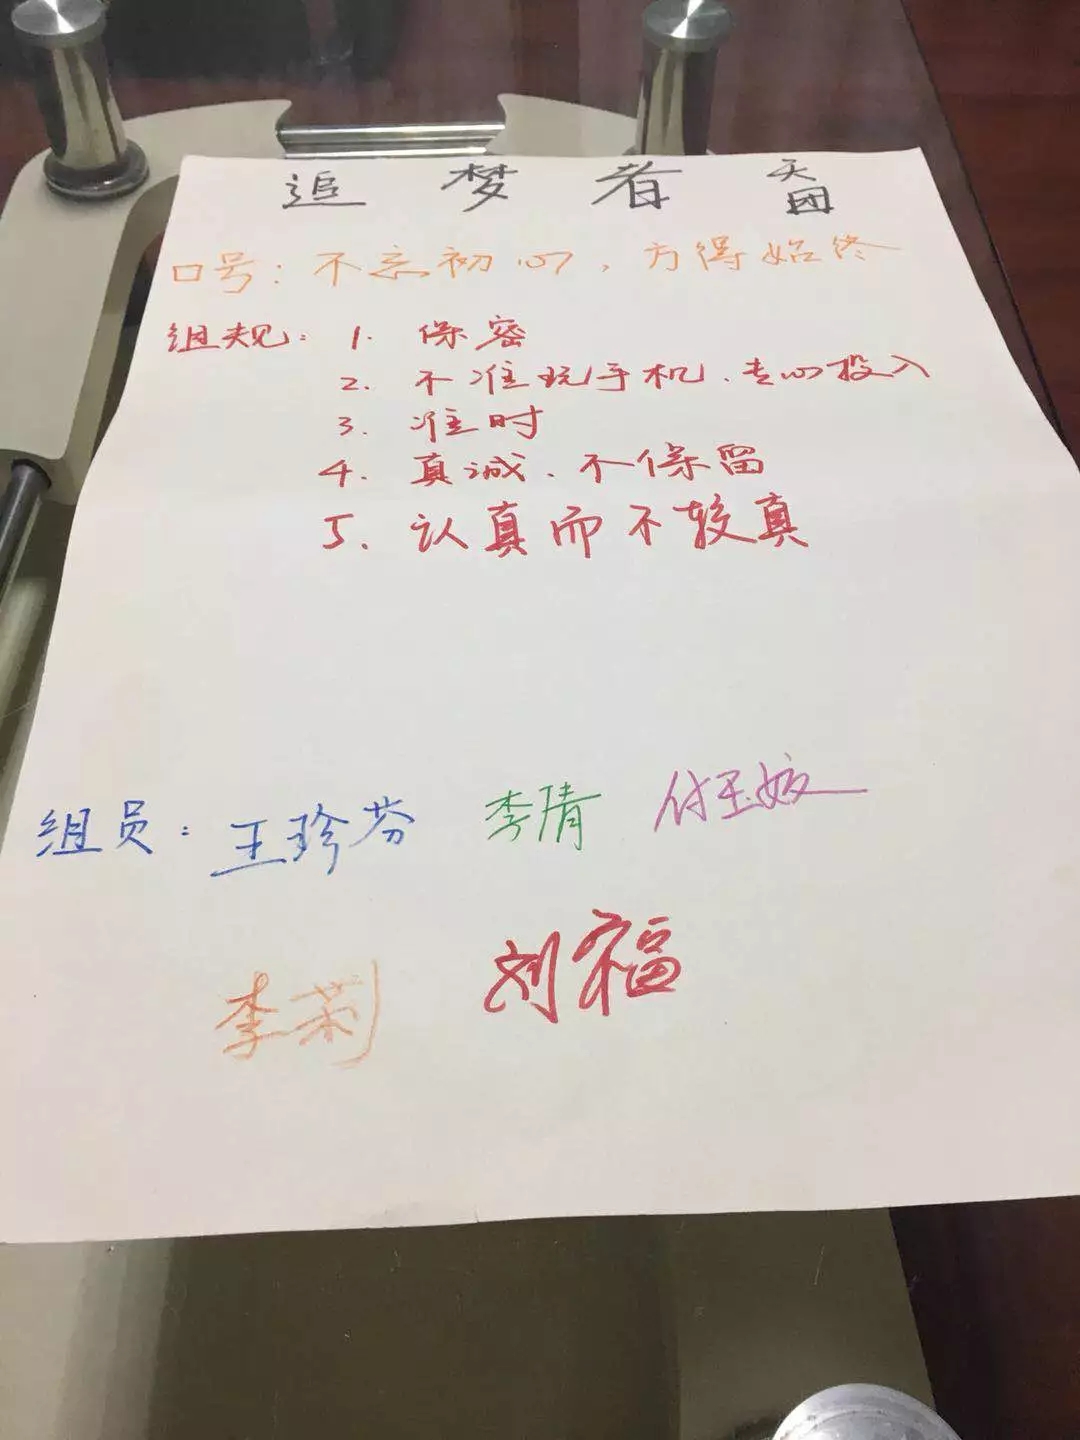 追梦者天团
口号：不忘初心，方得始终
组规：1. 保密
2. 不准玩手机、专心投入
3. 准时
4. 真诚、不保留
5. 认真而不较真
组员：王珍芬 李倩 付玉姣
李莉 刘福